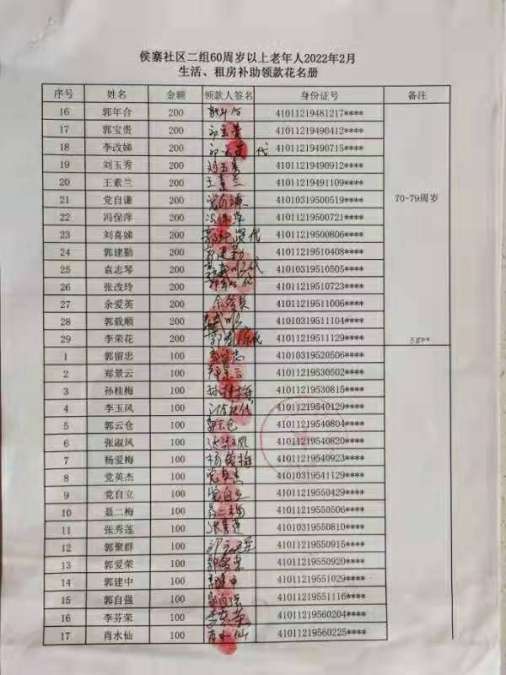 侯寨社区二组60周岁以上老年人2022年2月
生活、租房补助领款花名册
序号 姓名 金额 领款人签名 身份证号 备注
16 郭年合 200 郭年合 41011219481217****
17 郭宝贵 200 41011219490412****
18 李改娣 200 代 41011219490715****
19 刘玉秀 200 刘玉秀 41011219490912****
20 王素兰 200 王素兰 41011219491109****
21 党自谦 200 41010319500519****
70-79周岁
22 冯保萍 200 41011219500721****
23 刘喜娣 200 代 41011219500806****
24 郭建勤 200 41011219510408****
25 袁志琴 200 代 41010319510505****
26 张改玲 200 41011219510723****
27 余爱英 200 41011219511006****
28 郭载顺 200 41010319511104****
29 李荣花 200 代 41011219511129****
1 郭留忠 100 41010319520506****
2 郑景云 100 41011219530502****
3 孙桂梅 100 孙桂梅 41011219530815****
4 李玉凤 100 41011219540129****
5 郭云仓 100 郭云仓 41011219540804****
6 张淑凤 100 41011219540820****
7 杨爱梅 100 杨爱梅 41011219540923****
8 党英杰 100 41010319541129****
9 党自立 100 党自立 41011219550429****
10 聂二梅 100 41011219550506****
11 张秀莲 100 41010319550810****
12 郭聚群 100 41011219550915****
13 郭爱荣 100 41011219550920****
14 郭建中 100 41011219551029****
15 郭自强 100 41011219551116****
16 李芬荣 100 41011219560204****
17 肖水仙 100 肖水仙 41011219560225****